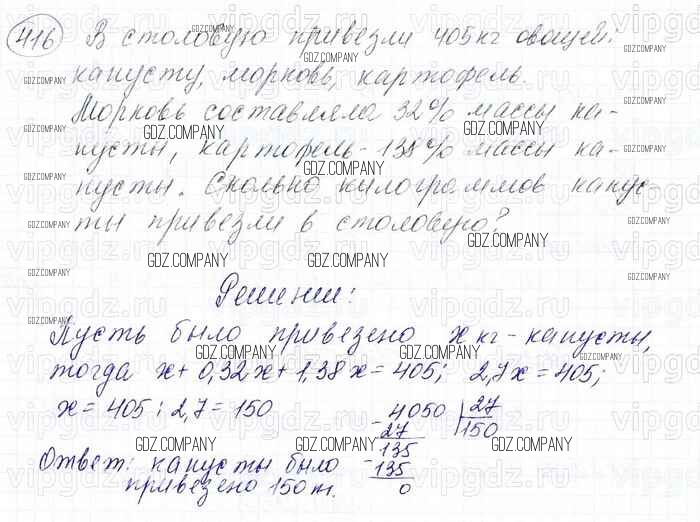 416 В столовую привезли 405 кг овощей:
капусту, морковь, картофель.
Морковь составляла 32% массы ка-
пусты, картофель - 138% массы ка-
пусты. Сколько килограммов капус-
ты привезли в столовую?
Решении:
Пусть было привезено x кг - капусты,
тогда x + 0,32x + 1,38x = 405; 2,7x = 405;
x = 405 : 2,7 = 150
4050 | 27
- 27 | 150
135
- 135
0
Ответ: капусты было
привезено 150 т.
GDZ.COMPANY
vipgdz.ru